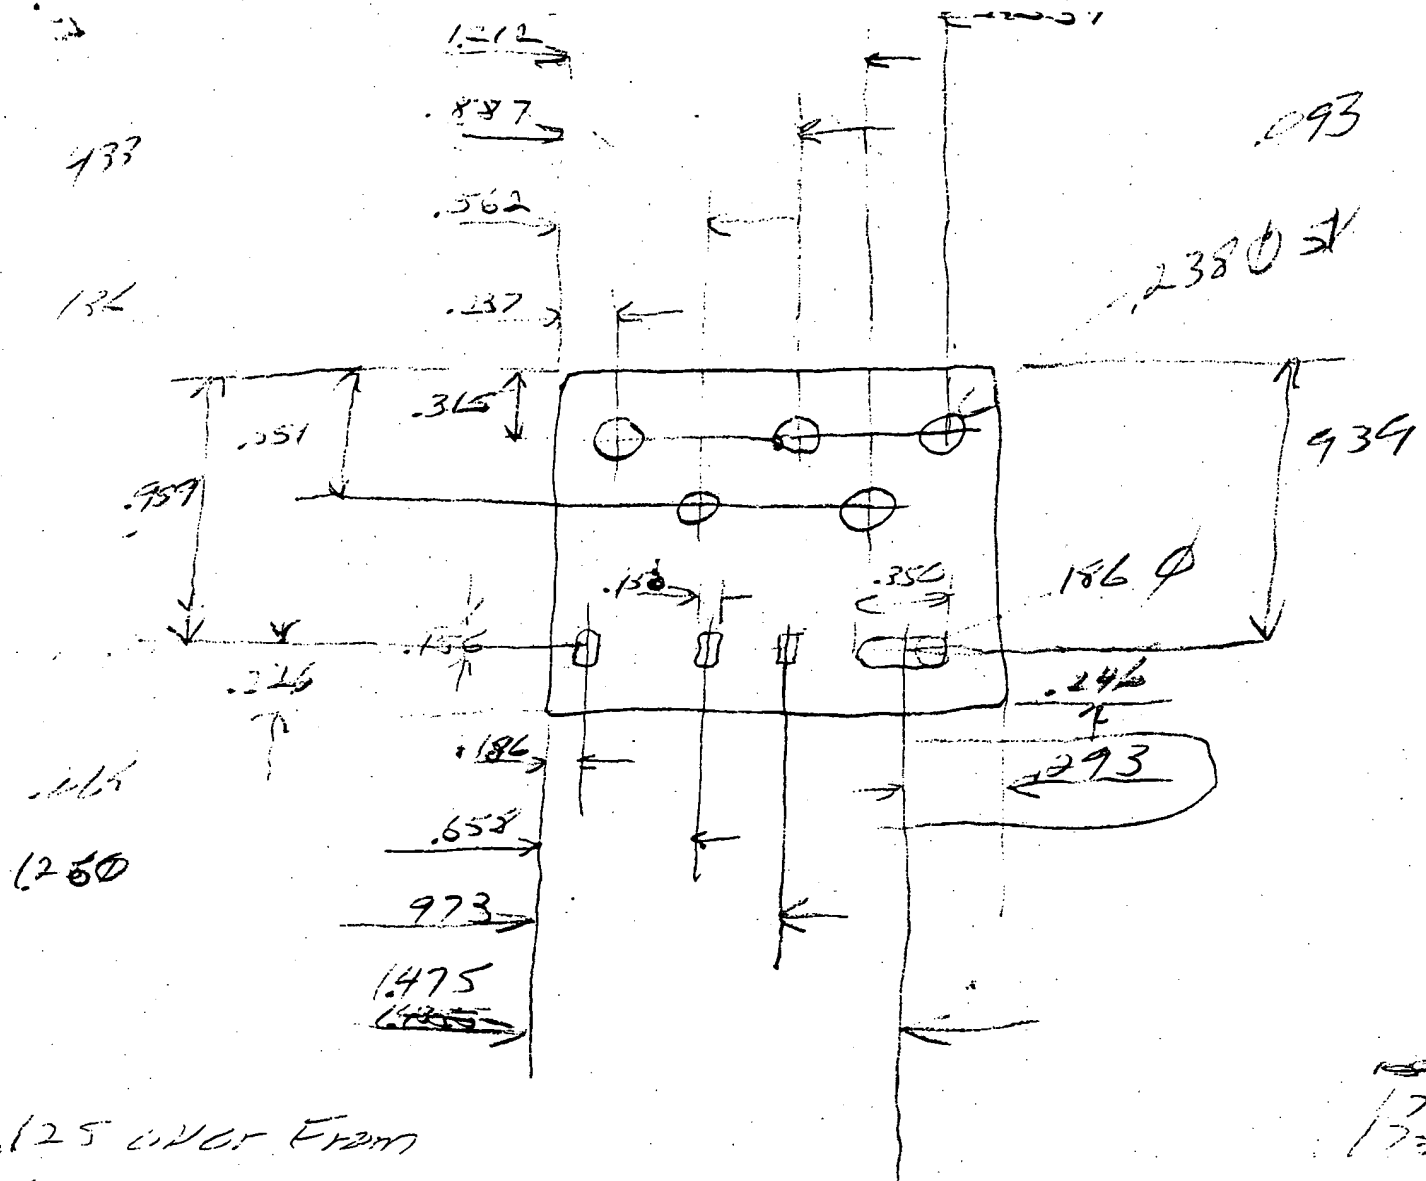 1.212
.887
.093
433
.562
.238 Ø
.237
.365
.351
.959
939
.158
.350
.186 Ø
.156
.226
.246
.186
.293
.658
1.250
973
1.475
.125 over From